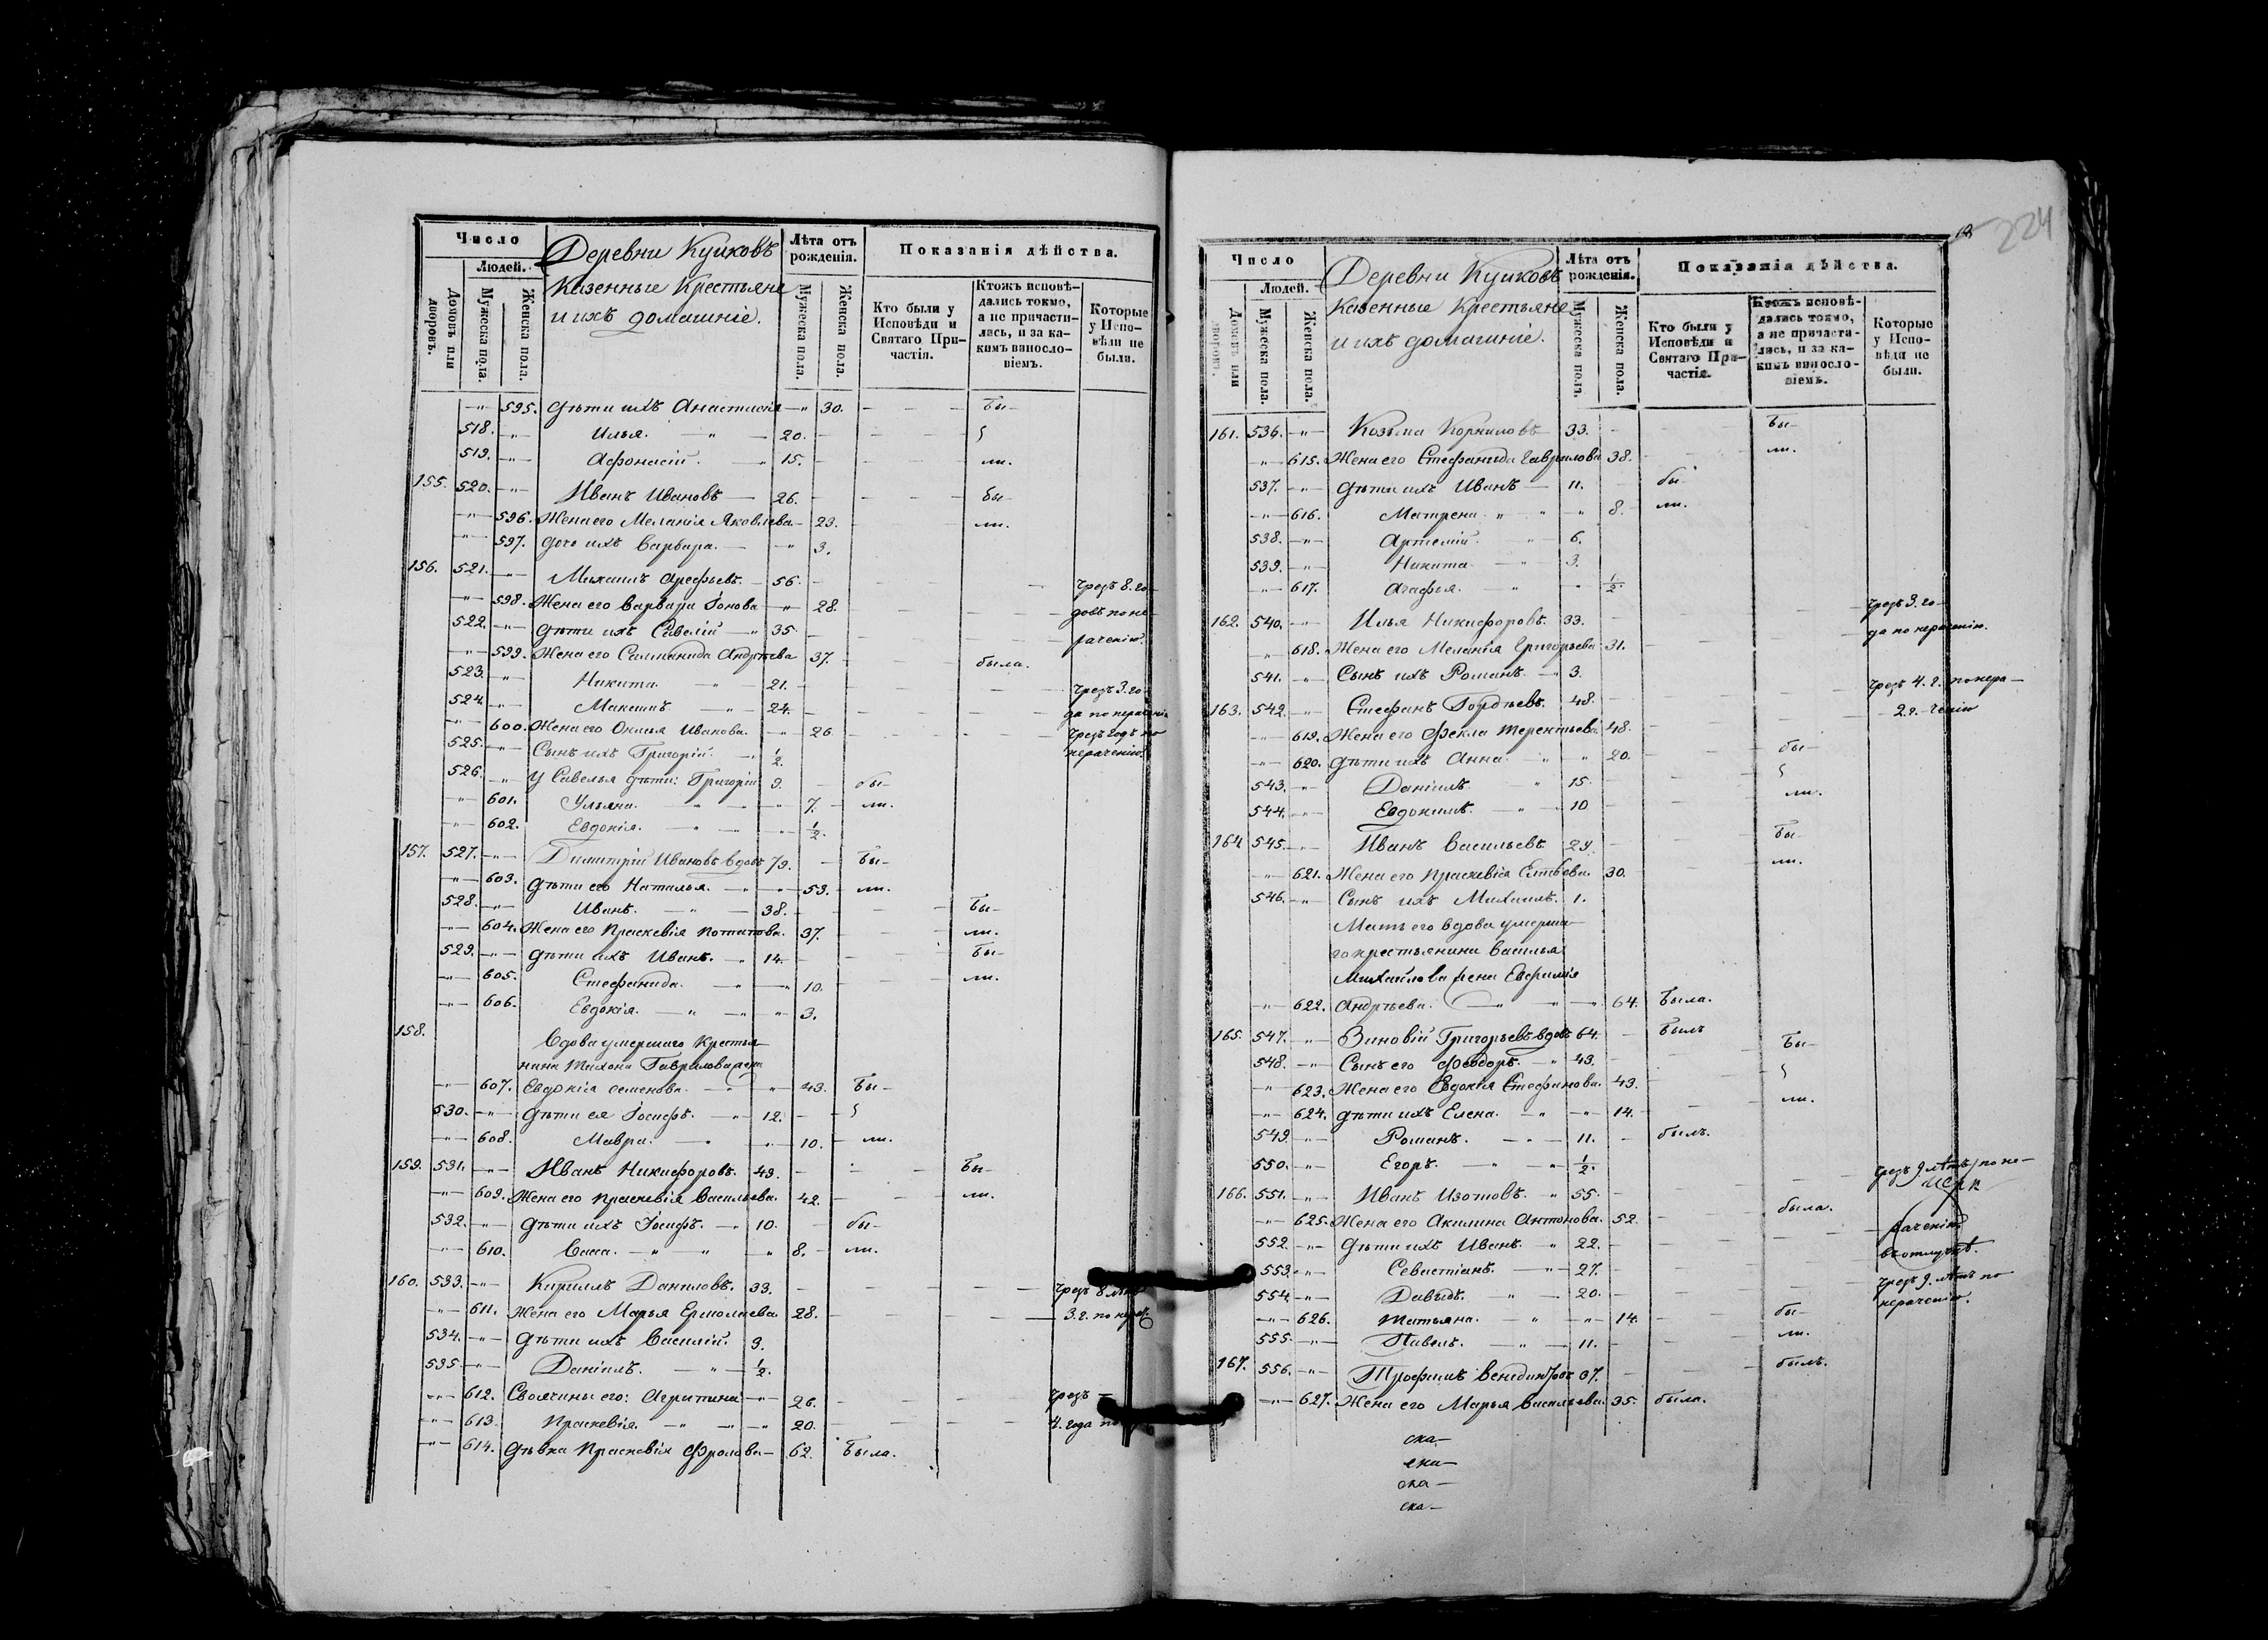 Число
Людей.
Домовъ или дворовъ.
Мужеска пола.
Женска пола.
Деревни Куиковъ
Казенные Крестьяне
и ихъ домашніе.
Лѣта отъ рожденія.
Мужеска пола.
Женска пола.
Показанія дѣйства.
Кто были у Исповѣди и Святаго Причастія.
Ктожъ исповѣдались токмо, а не причастились, и за какимъ винословіемъ.
Которые у Исповѣди не были.
-"- 595. Дѣти ихъ Анастасія -"- 30. - - - Бы-
518. -"- Илья. -"- 20.
519. -"- Афонасій. " 15. - - - ли.
155. 520. -"- Иванъ Ивановъ - 26. - - - Бы-
-"- 596. Жена его Меланія Яковлева - 29. - ли.
-"- 597. Дочь ихъ Варвара. - -"- 3.
156. 521. -"- Михаилъ Арефьевъ. - 56. - - чрезъ 8. го-
-"- 598. Жена его Варвара Іонова -"- 28. - - - довъ по не-
522. -"- Дѣти ихъ Савелій -"- 35. - - - раченію.
-"- 599. Жена его Саломанида Андрѣева 37. - была.
523. -"- Никита. -"- 21. - - - чрезъ 3. го-
524. -"- Максимъ -"- 24. - - - да по нераченію
-"- 600. Жена его Онисья Иванова. -"- 26 - - - чрезъ годъ по
525. -"- Сынъ ихъ Григорій. -"- 1/2. нераченію.
526. -"- У Савелья дѣти: Григорій 9. - бы-
-"- 601. Ульяна. -"- -"- 7. - ли.
-"- 602. Евдокія. -"- -"- 1/2.
157. 527. -"- Димитрій Ивановъ вдовъ 79. - Бы-
-"- 603. Дѣти его Наталья. -"- -"- 53. - ли.
528. -"- Иванъ. -"- 38. - - - Бы-
-"- 604. Жена его Праскевія Потапова. 37. - - ли.
529. -"- Дѣти ихъ Иванъ. -"- 14. - - Бы-
-"- 605. Стефанида. -"- -"- 10. - - ли.
-"- 606. Евдокія. -"- -"- 3.
158. Вдова умершаго Крестья-
нина Тихона Гаврилова жена
-"- 607. Евдокія Семенова. -"- 43. - Бы-
530. -"- Дѣти ея Іосифъ. -"- 12. -
-"- 608. Мавра. -"- 10. - ли.
159. 531. -"- Иванъ Никифоровъ. 49. - - - Бы-
-"- 609. Жена его Праскевія Васильева. 42. - - ли.
532. -"- Дѣти ихъ Іосифъ. -"- 10. - бы-
-"- 610. Васса. -"- " 8. - ли.
160. 533. -"- Кириллъ Даниловъ. 33. - - - чрезъ 8 лѣтъ
-"- 611. Жена его Марья Ермолаева. 28. - - - 3. г. по
534. -"- Дѣти ихъ Василій. 9.
535. -"- Даніилъ. -"- 1/2.
-"- 612. Своячины его: Агрипина -"- 26. - - - чрезъ
-"- 613. Праскевія. -"- -"- 20. - - - 4. года по
-"- 614. Дѣвка Праскевія Фролова - 62. Была.
224
Число
Людей.
Домовъ или дворовъ.
Мужеска пола.
Женска пола.
Деревни Куиковъ
Казенные Крестьяне
и ихъ домашніе.
Лѣта отъ рожденія.
Мужеска полъ.
Женска пола.
Показанія дѣйства.
Кто были у Исповѣди и Святаго Причастія.
Ктожъ исповѣдались токмо, а не причастились, и за какимъ винословіемъ.
Которые у Исповѣди не были.
161. 536. -"- Козьма Корниловъ 33. - - - Бы-
-"- 615. Жена его Стефанида Гаврилова 38. - - ли.
537. -"- Дѣти ихъ Иванъ - 11. - бы-
-"- 616. Матрена. " " 8. - ли.
538. -"- Артемій. " 6.
539. -"- Никита. -"- 3.
-"- 617. Агафья. " " 1/2.
162. 540. -"- Илья Никифоровъ. 33. - - - чрезъ 3. го-
-"- 618. Жена его Меланія Григорьева 31. - - - да по нераченію.
541. -"- Сынъ ихъ Романъ. -"- 3.
163. 542. -"- Стефанъ Гордѣевъ. 48. - - - чрезъ 4. г. по нера-
-"- 619. Жена его Фекла Терентьева 48. - - - 2. г. ченію
-"- 620. Дѣти ихъ Анна. " " 20. - - бы-
543. -"- Даніилъ. " 15. -
544. -"- Евдокимъ. -"- 10 - - ли.
164. 545. -"- Иванъ Васильевъ 29. - - - Бы-
-"- 621. Жена его Праскевія 30. - - ли.
546. -"- Сынъ ихъ Михаилъ. 1.
Мать его вдова умерша-
го крестьянина Василья
Михайлова жена Евфимія
-"- 622. Андрѣева. -"- -"- 64. Была.
165. 547. -"- Зиновій Григорьевъ вдовъ 64. - Былъ
548. -"- Сынъ его Феодоръ. -"- 43. - - Бы-
-"- 623. Жена его Евдокія Стефанова. 43. -
-"- 624. Дѣти ихъ Елена. -"- -"- 14. - - ли.
549. -"- Романъ. -"- 11. - былъ.
550. -"- Егоръ. -"- 1/2.
166. 551. -"- Иванъ Изотовъ. " 55. - - - чрезъ 9 лѣтъ по не-
-"- 625. Жена его Акилина Антонова. 52. - - была.
раченію
552. -"- Дѣти ихъ Иванъ. " 22. - - - въ отлучкѣ.
553. -"- Севастіанъ. -"- 27. - - - чрезъ 9. лѣтъ по
554. -"- Давыдъ. -"- 20. - - - нераченію.
-"- 626. Татьяна. -"- -"- 14. - - бы-
555. -"- Павелъ. -"- 11. - - ли.
167. 556. -"- Трофимъ 37. - - - былъ.
-"- 627. Жена его Марья Васильева. 35. была.
ска-
ска-
ска-